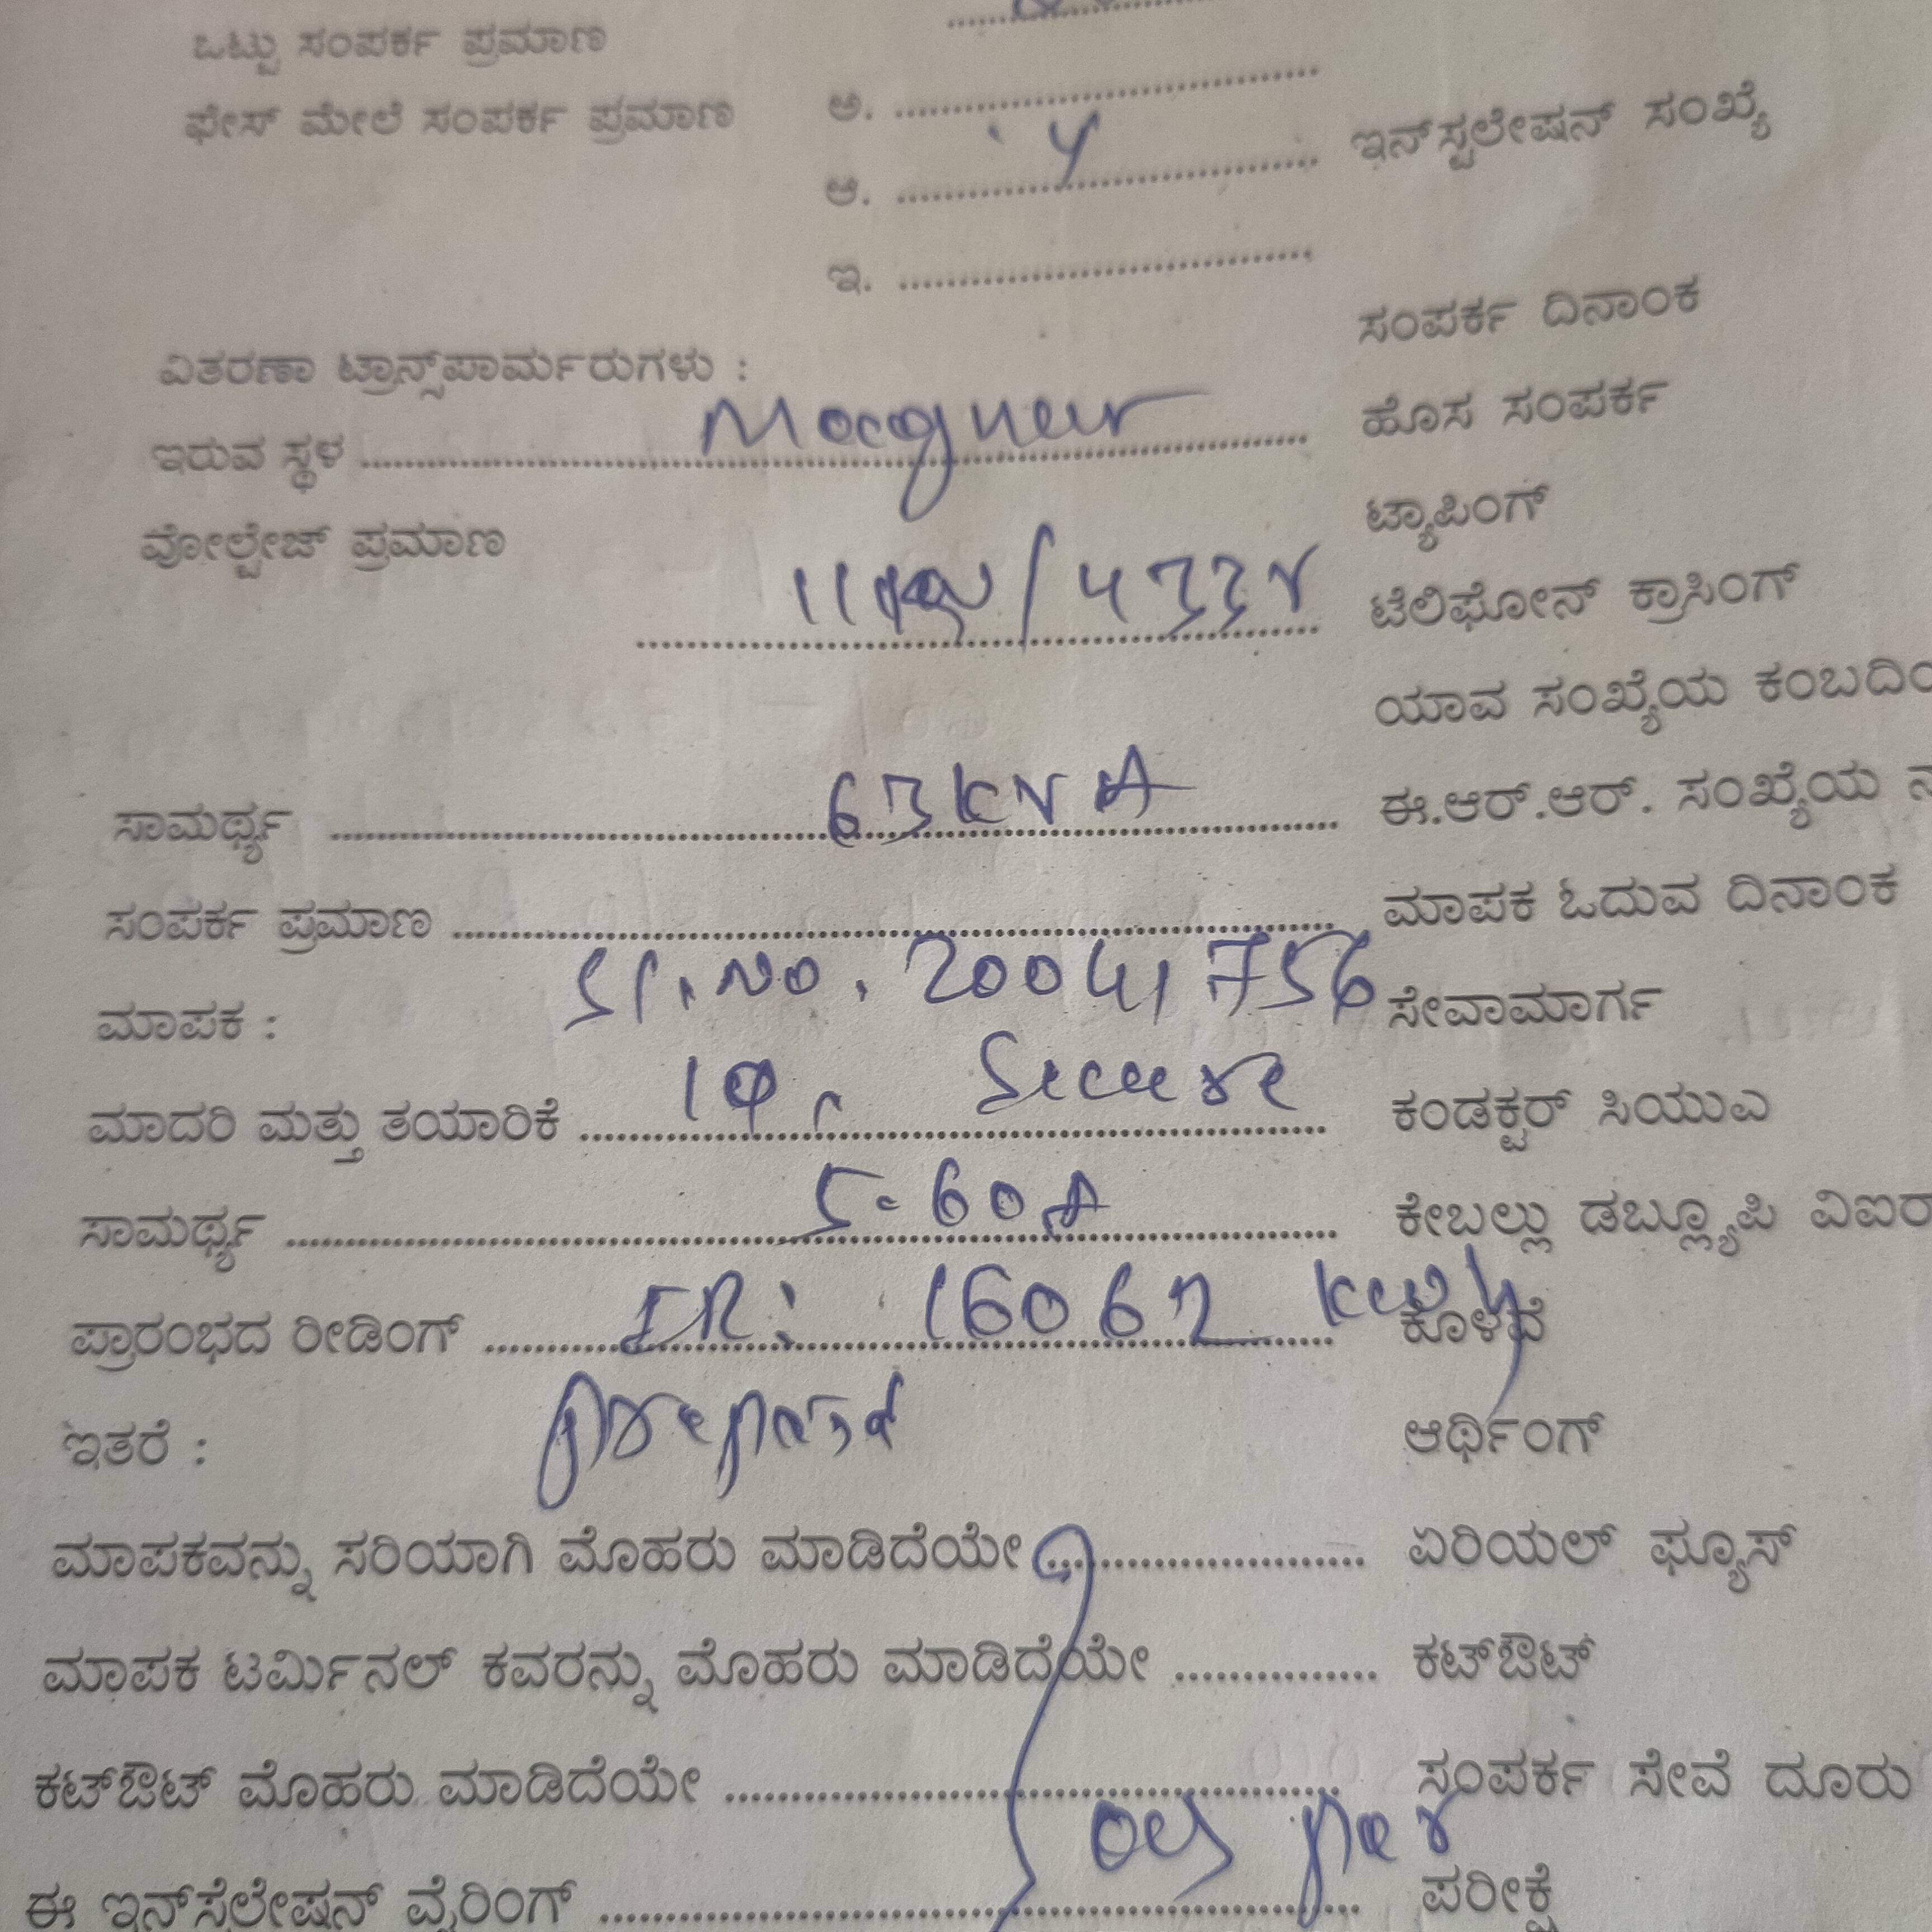 ಒಟ್ಟು ಸಂಪರ್ಕ ಪ್ರಮಾಣ
ಫೇಸ್ ಮೇಲೆ ಸಂಪರ್ಕ ಪ್ರಮಾಣ ಅ. ....................
ಆ. .................... ಇನ್‌ಸ್ಟಲೇಷನ್ ಸಂಖ್ಯೆ
ಇ. ....................
ಸಂಪರ್ಕ ದಿನಾಂಕ
ವಿತರಣಾ ಟ್ರಾನ್ಸ್‌ಪಾರ್ಮರುಗಳು :
ಇರುವ ಸ್ಥಳ .................... ಹೊಸ ಸಂಪರ್ಕ
ವೋಲ್ಟೇಜ್ ಪ್ರಮಾಣ ಟ್ಯಾಪಿಂಗ್
11kv/433v ಟೆಲಿಫೋನ್ ಕ್ರಾಸಿಂಗ್
ಯಾವ ಸಂಖ್ಯೆಯ
ಸಾಮರ್ಥ್ಯ 63 KVA ಈ.ಆರ್.ಆರ್. ಸಂಖ್ಯೆಯ
ಸಂಪರ್ಕ ಪ್ರಮಾಣ .................... ಮಾಪಕ ಓದುವ ದಿನಾಂಕ
ಮಾಪಕ : Sl. No. 20041756 ಸೇವಾಮಾರ್ಗ
ಮಾದರಿ ಮತ್ತು ತಯಾರಿಕೆ 1φ, Secure ಕಂಡಕ್ಟರ್ ಸಿಯುಎ
ಸಾಮರ್ಥ್ಯ 5-60A ಕೇಬಲ್ಲು ಡಬ್ಲ್ಯೂಪಿ
ಪ್ರಾರಂಭದ ರೀಡಿಂಗ್ IR: 16062 kwh ಕೊಳವೆ
ಇತರೆ : ಆರ್ಥಿಂಗ್
ಮಾಪಕವನ್ನು ಸರಿಯಾಗಿ ಮೊಹರು ಮಾಡಿದೆಯೇ .................... ಏರಿಯಲ್ ಫ್ಯೂಸ್
ಮಾಪಕ ಟರ್ಮಿನಲ್ ಕವರನ್ನು ಮೊಹರು ಮಾಡಿದೆಯೇ ............... ಕಟ್‌ಔಟ್
ಕಟ್‌ಔಟ್ ಮೊಹರು ಮಾಡಿದೆಯೇ .................... ಸಂಪರ್ಕ ಸೇವೆ ದೂರು
ಈ ಇನ್‌ಸ್ಟಲೇಷನ್ ವೈರಿಂಗ್ .................... ಪರೀಕ್ಷೆ